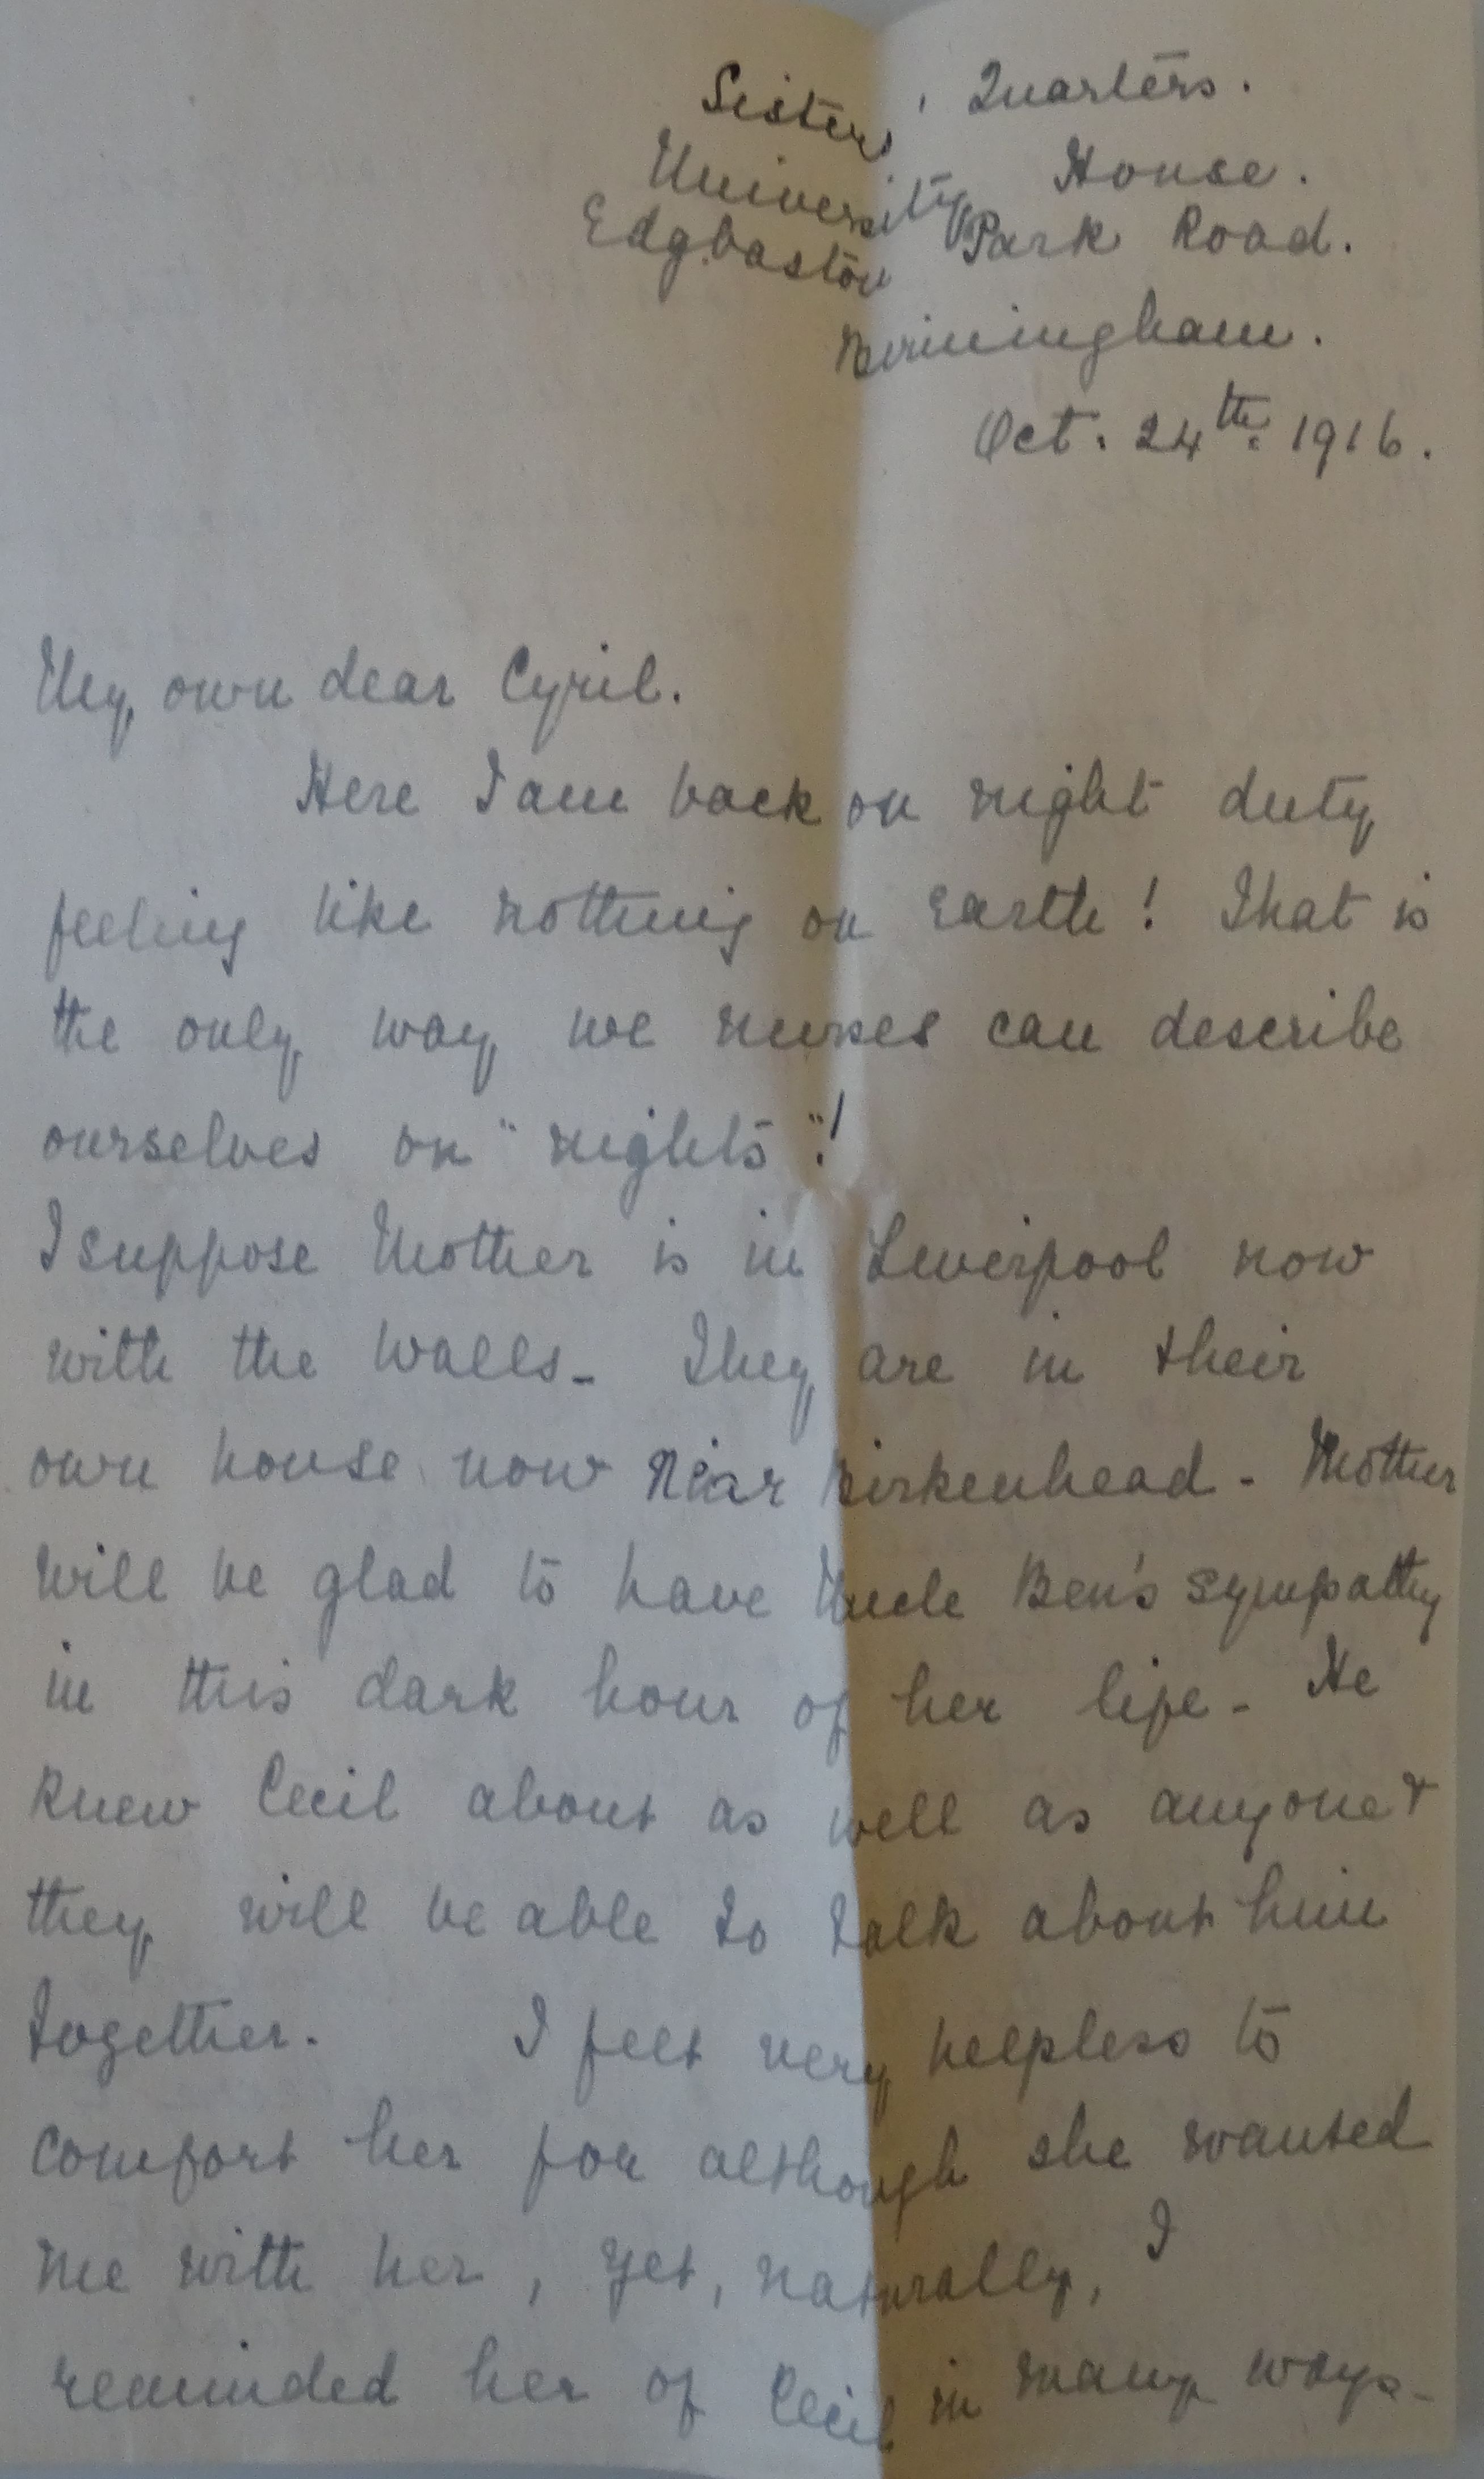 Sisters' Quarters.
University House.
Edgbaston Park Road.
Birmingham.
Oct. 24th. 1916.
My own dear Cyril.
Here I am back on night duty
feeling like nothing on earth! That is
the only way we nurses can describe
ourselves on "nights"!
I suppose Mother is in Liverpool now
with the Walls- They are in their
own house now near Birkenhead- Mother
will be glad to have Uncle Ben's sympathy
in this dark hour of her life- He
knew Cecil about as well as anyone &
they will be able to talk about him
together. I felt very helpless to
comfort her for although she wanted
me with her, yet, naturally, I
reminded her of Cecil in many ways-